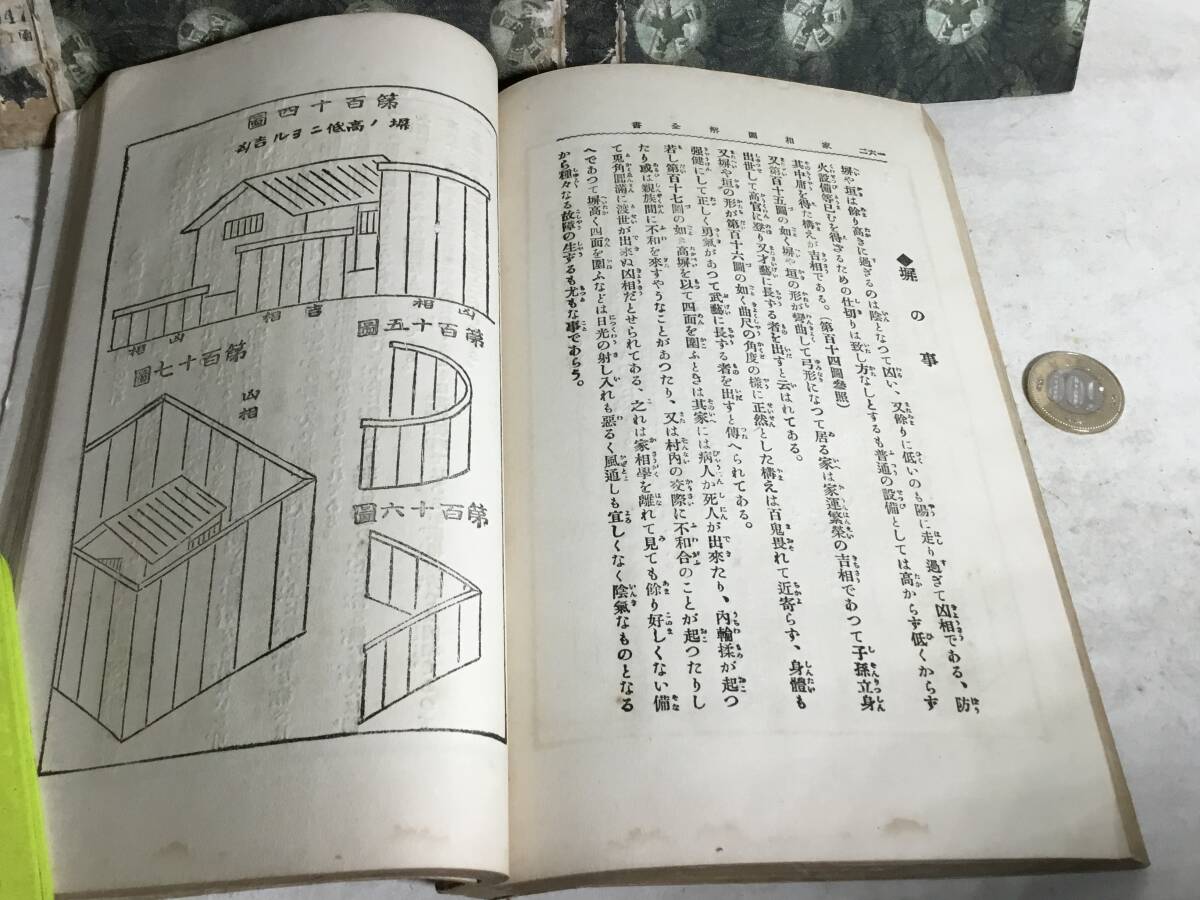 家相圖解全書
一六二
◆塀の事
塀や垣は餘り高きに過ぎるのは陰となつて凶い、又餘りに低いのも陽に走り過ぎて凶相である、防
火設備等已むを得ざるための仕切りは致し方なしとするも普通の設備としては高からず低くからず
其中庸を得た構えが吉相である。(第百十四圖參照)
又第百十五圖の如く塀や垣の形が彎曲して弓形になつて居る家は家運繁榮の吉相であつて子孫立身
出世して高官に登り又才藝に長する者を出すと云はれてある。
又塀や垣の形が第百十六圖の如く曲尺の角度の樣に正然とした構えは百鬼畏れて近寄らず、身體も
强健にして正しく勇氣があつて武藝に長する者を出すと傳へられてある。
若し第百十七圖の如き高塀を以て四面を圍ふときは其家には病人か死人が出來たり、內輪揉が起つ
たり或は親族間に不和を來すやうなことがあつたり、又は村內の交際に不和合のことが起つたりし
て兎角圓滿に渡世が出來ぬ凶相だとせられてある、之れは家相學を離れて見ても餘り好しくない備
へであつて塀高く四面を圍ふなどは日光の射し入れも惡るく風通しも宜しくなく陰氣なものとなる
から種々なる故障の生ずるも尤もな事であらう。
第百十四圖
塀ノ高低ニヨル吉凶
凶相
吉相
凶相
第百十五圖
第百十六圖
第百十七圖
凶相
47